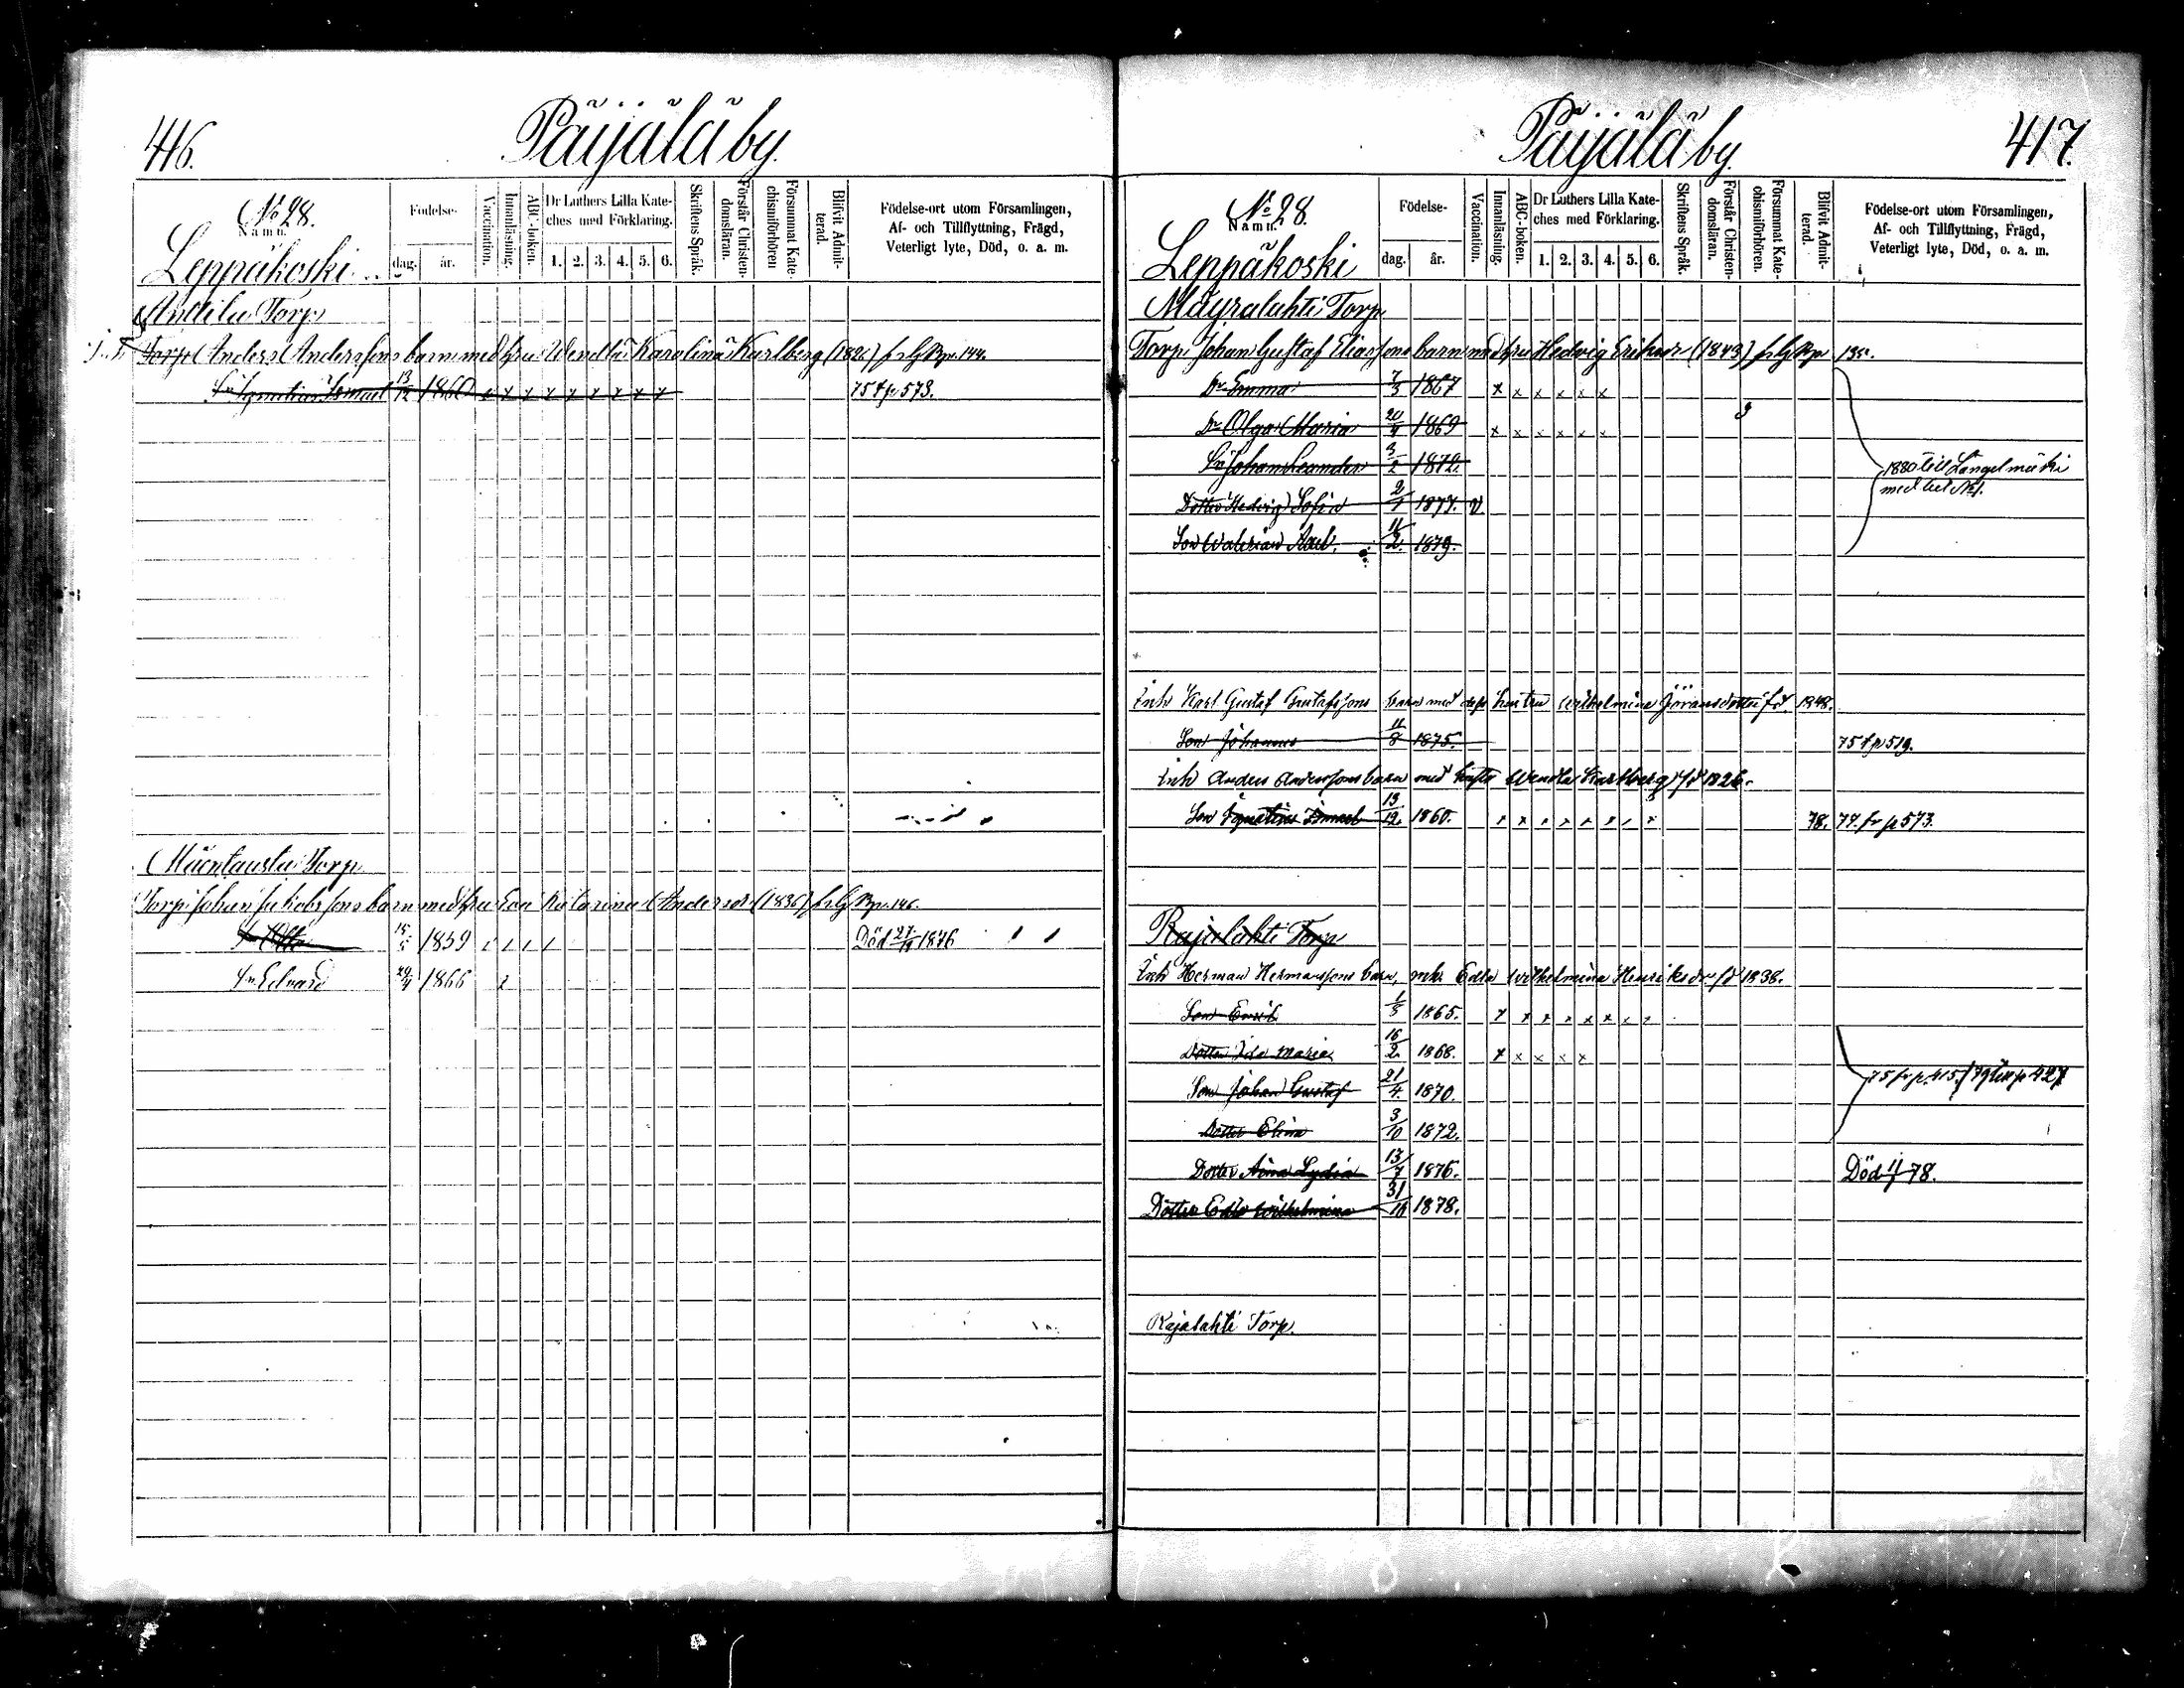 416.
Päijälä by.
No 28.
Namn.
Leppäkoski
Födelse-
dag.
år.
Vaccination.
Innanläsning.
ABC-boken.
Dr Luthers Lilla Kate-
ches med Förklaring.
1. 2. 3. 4. 5. 6.
Skriftens Språk.
Förstår Christen-
domsläran.
Försummat Kate-
chismiförhören
Blifvit Admit-
terad.
Födelse-ort utom Församlingen,
Af- och Tillflyttning, Frägd,
Veterligt lyte, Död, o. a. m.
Anttila Torp
Torp Anders Anderssons barn med hru Wendla Karolina Karlberg (1826) 144.
Sn Ignatius Ismael 13/12 1860 x x x x x x x x x 75 t p 573.
Mäentausta Torp
Torp. Johan Jakobssons barn med hru Eva Katarina Andersdr (1836) 146.
Sn Otto 1859 Död 1876
Sn Edvard 1866
417.
Päijälä by.
No 28.
Namn.
Leppäkoski
Födelse-
dag.
år.
Vaccination.
Innanläsning.
ABC-boken.
Dr Luthers Lilla Kate-
ches med Förklaring.
1. 2. 3. 4. 5. 6.
Skriftens Språk.
Förstår Christen-
domsläran.
Försummat Kate-
chismiförhören.
Blifvit Admit-
terad.
Födelse-ort utom Församlingen,
Af- och Tillflyttning, Frägd,
Veterligt lyte, Död, o. a. m.
Mäyrälahti Torp
Torp. Johan Gustaf Eliassons barn med hru Hedvig Eriksdr (1843) 135.
Dr Emma 7/3 1867 x x x x x x
Dr Olga Maria 20/4 1869 x x x x x x
Sn Johan Leander 3/2 1872.
1880 till Längelmäki
med bet No 1.
Dotter Hedvig Sofia 2/1 1877. v
Son Walerian Axel. 11/2. 1879.
Inh Karl Gustaf Gustafssons barn med dess hustru Wilhelmina Göransdotter fd. 1848.
Son Johannes 11/8 1875. 75 f p 519.
Inh Anders Anderssons barn med hustr Wendla Karlberg fd 1826.
Son Ignatius Ismael 13/12. 1860. x x x x x x x x 78. 77. fr p 573.
Rajalahti Torp
Inh Herman Hermanssons barn, m hr Edla Wilhelmina Henriksdr fd 1838.
Son Enrik 1/3 1865. x x x x x x x x
Dotter Ida Maria 16/2. 1868. x x x x x
Son Johan Gustaf 21/4. 1870.
75 fr p 415. / 79 till p 427
Dotter Elina 3/10 1872.
Dotter Aina Lydia 13/7 1876. Död 78.
Dotter Edla Wilhelmina 31/10 1878.
Rajalahti Torp.